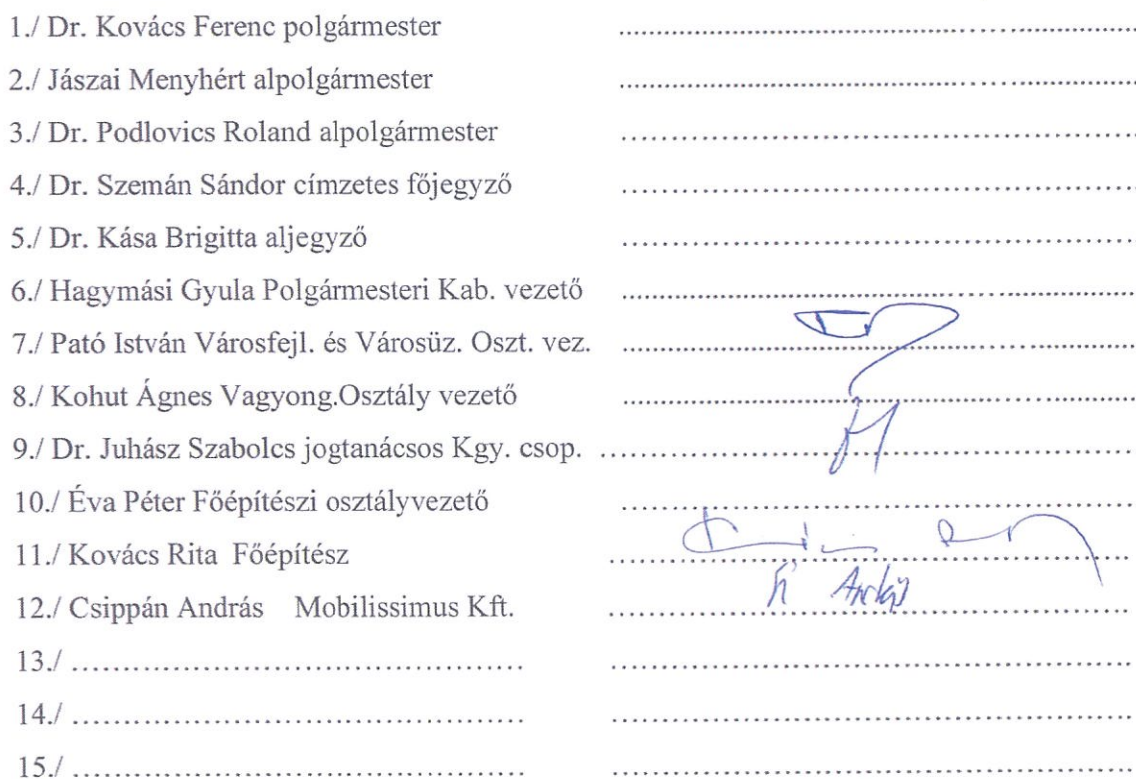 1./ Dr. Kovács Ferenc polgármester ....................
2./ Jászai Menyhért alpolgármester ....................
3./ Dr. Podlovics Roland alpolgármester ....................
4./ Dr. Szemán Sándor címzetes főjegyző ....................
5./ Dr. Kása Brigitta aljegyző ....................
6./ Hagymási Gyula Polgármesteri Kab. vezető ....................
7./ Pató István Városfejl. és Városüz. Oszt. vez. ....................
8./ Kohut Ágnes Vagyong.Osztály vezető ....................
9./ Dr. Juhász Szabolcs jogtanácsos Kgy. csop. ....................
10./ Éva Péter Főépítészi osztályvezető ....................
11./ Kovács Rita Főépítész ....................
12./ Csippán András Mobilissimus Kft. ....................
13./ .................... ....................
14./ .................... ....................
15./ .................... ....................